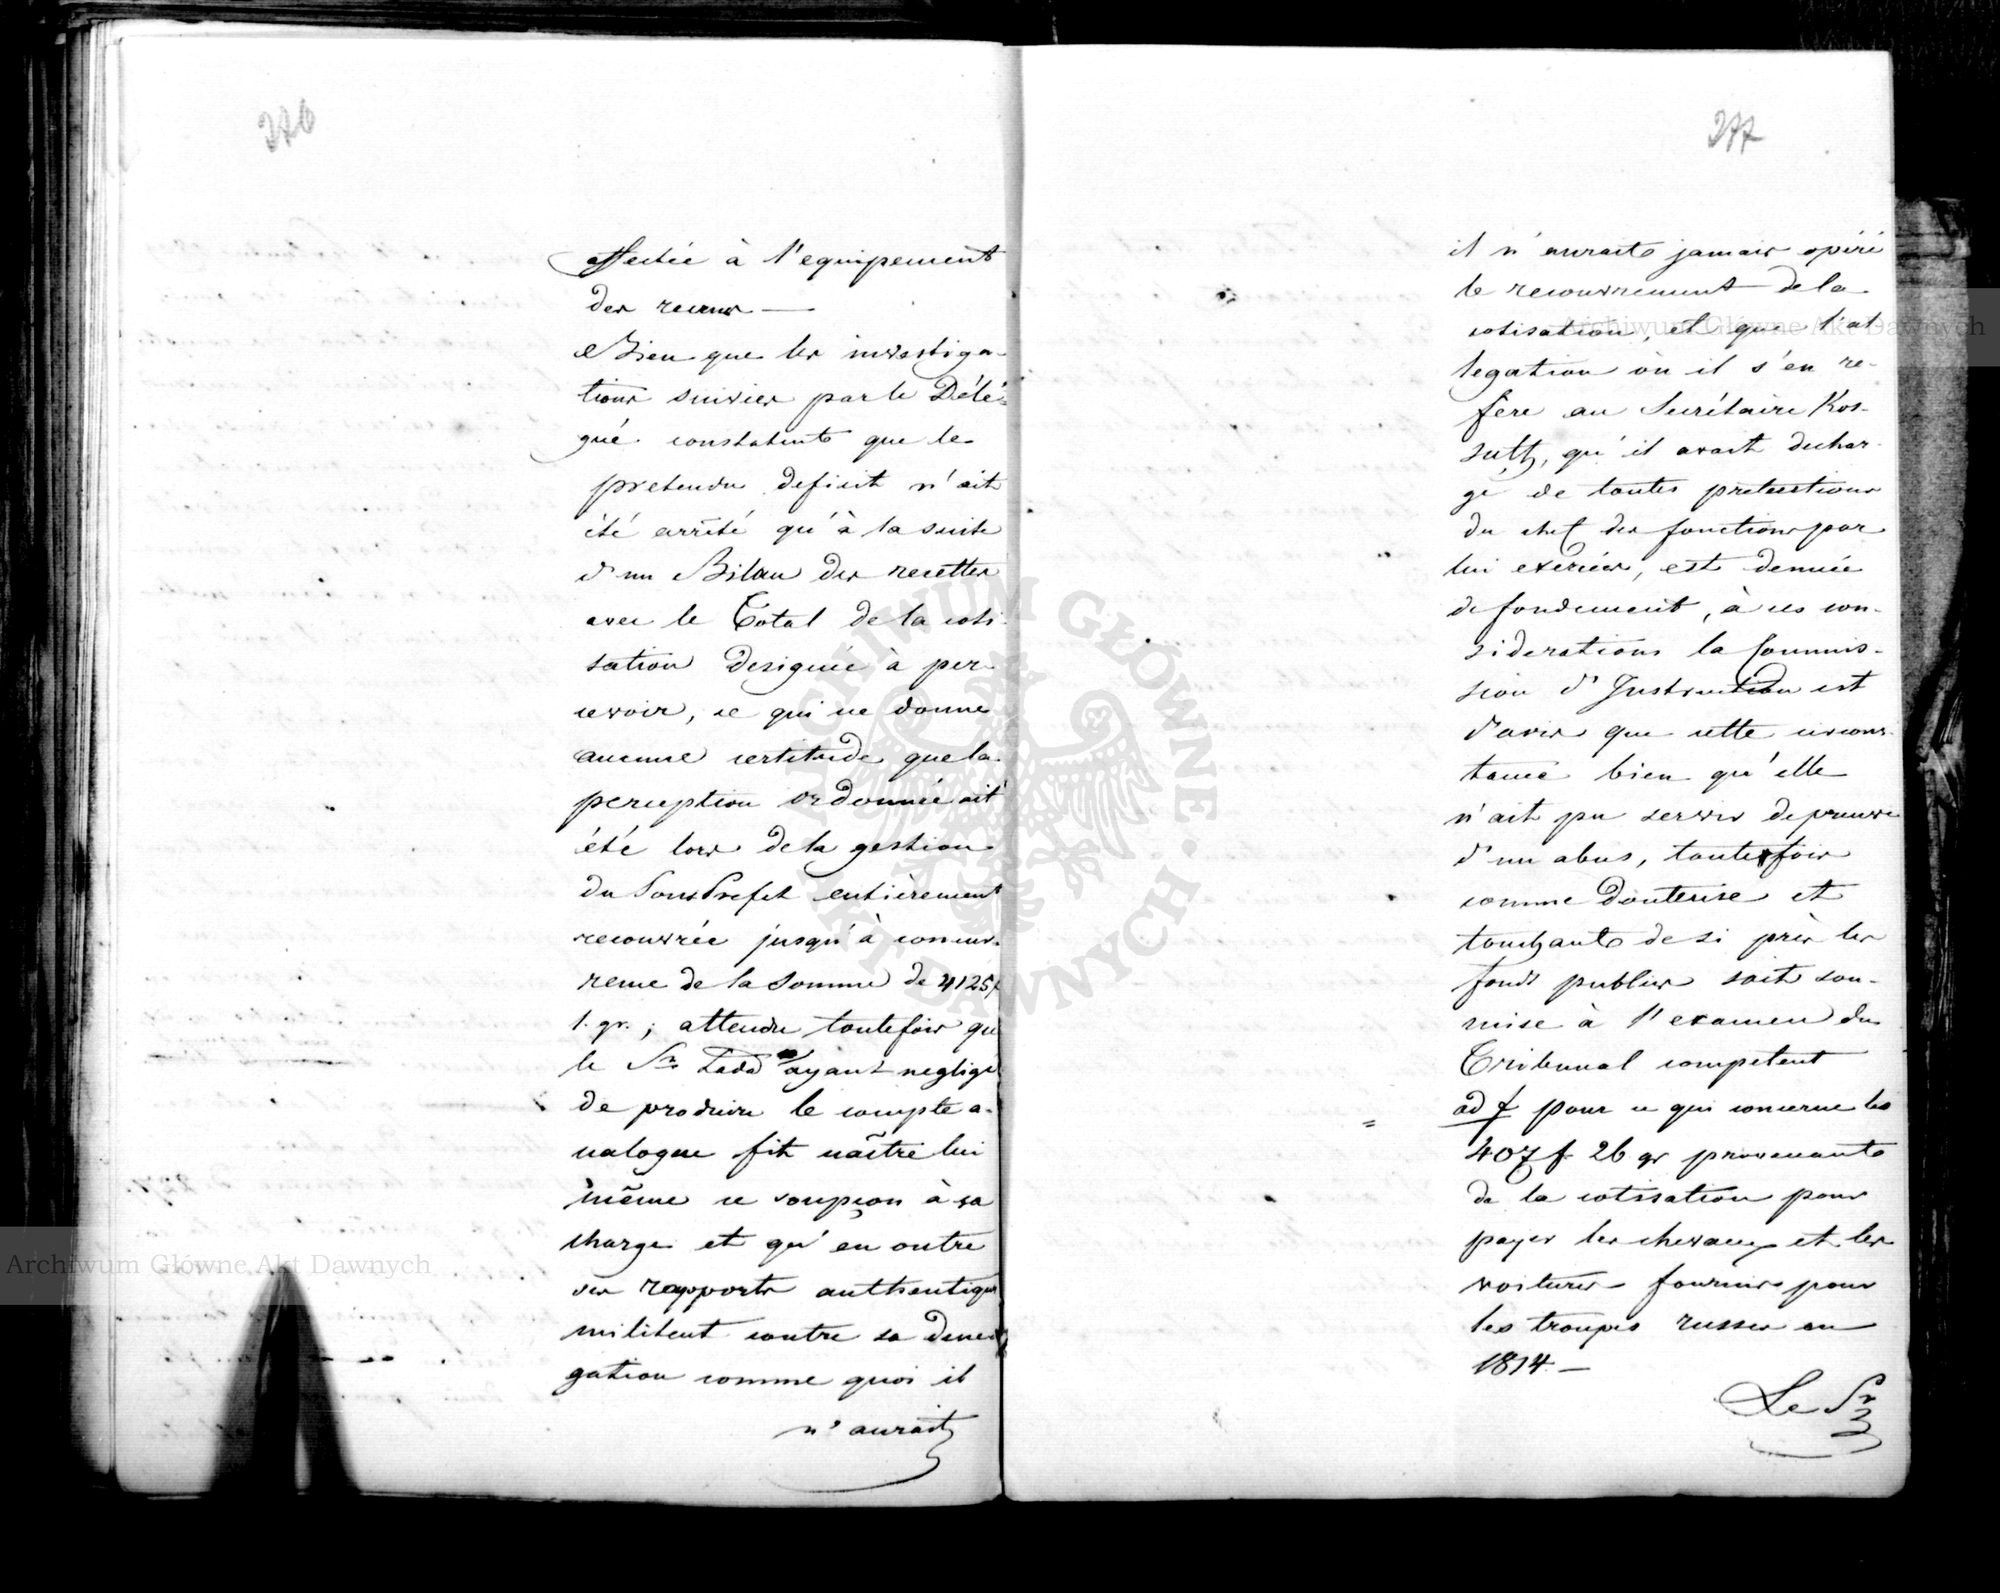 276
affectée à l'equipement
des recrus —
Bien que les investiga-
tions suivies par le Délé-
gué constatent que le
pretendu deficit n'ait
été arrêté qu'à la suite
d'un Bilan des recettes
avec le Total de la coti-
sation designée à per-
cevoir, ce qui ne donne
aucune certitude que la
perception ordonnée ait
été lors de la gestion
du Sous Prefet entièrement
recouvrée jusqu'à concur-
rence de la somme de 4125 f
1. gr. ; attendu toutefois que
le Sr. Zadd ayant negligé
de produire le compte a-
nalogue fit naître lui
même ce soupçon à sa
charge et qu'en outre
ses rapports authentiques
militent contre sa dene-
gation comme quoi il
n'aurait
277
il n'aurait jamais opéré
le recouvrement de la
cotisation, et que l'al-
legation où il s'en re-
fère au Secrétaire Kos-
sutz, qu'il avait dechar-
gé de toutes pretentions
du chef des fonctions par
lui exercées, est denuée
de fondement, à ces con-
siderations la Commis-
sion d'Instruction est
d'avis que cette circons-
tance bien qu'elle
n'ait pu servir de preuve
d'un abus, toutefois
comme douteuse et
touchant de si près les
fonds publics soit sou-
mise à l'examen du
Tribunal competent
ad f pour ce qui concerne les
407 f. 26 gr provenants
de la cotisation pour
payer les chevaux et les
voitures fournies pour
les troupes russes en
1814. —
Le Sr
Archiwum Główne Akt Dawnych
Archiwum Główne Akt Dawnych
ARCHIWUM GŁÓWNE AKT DAWNYCH